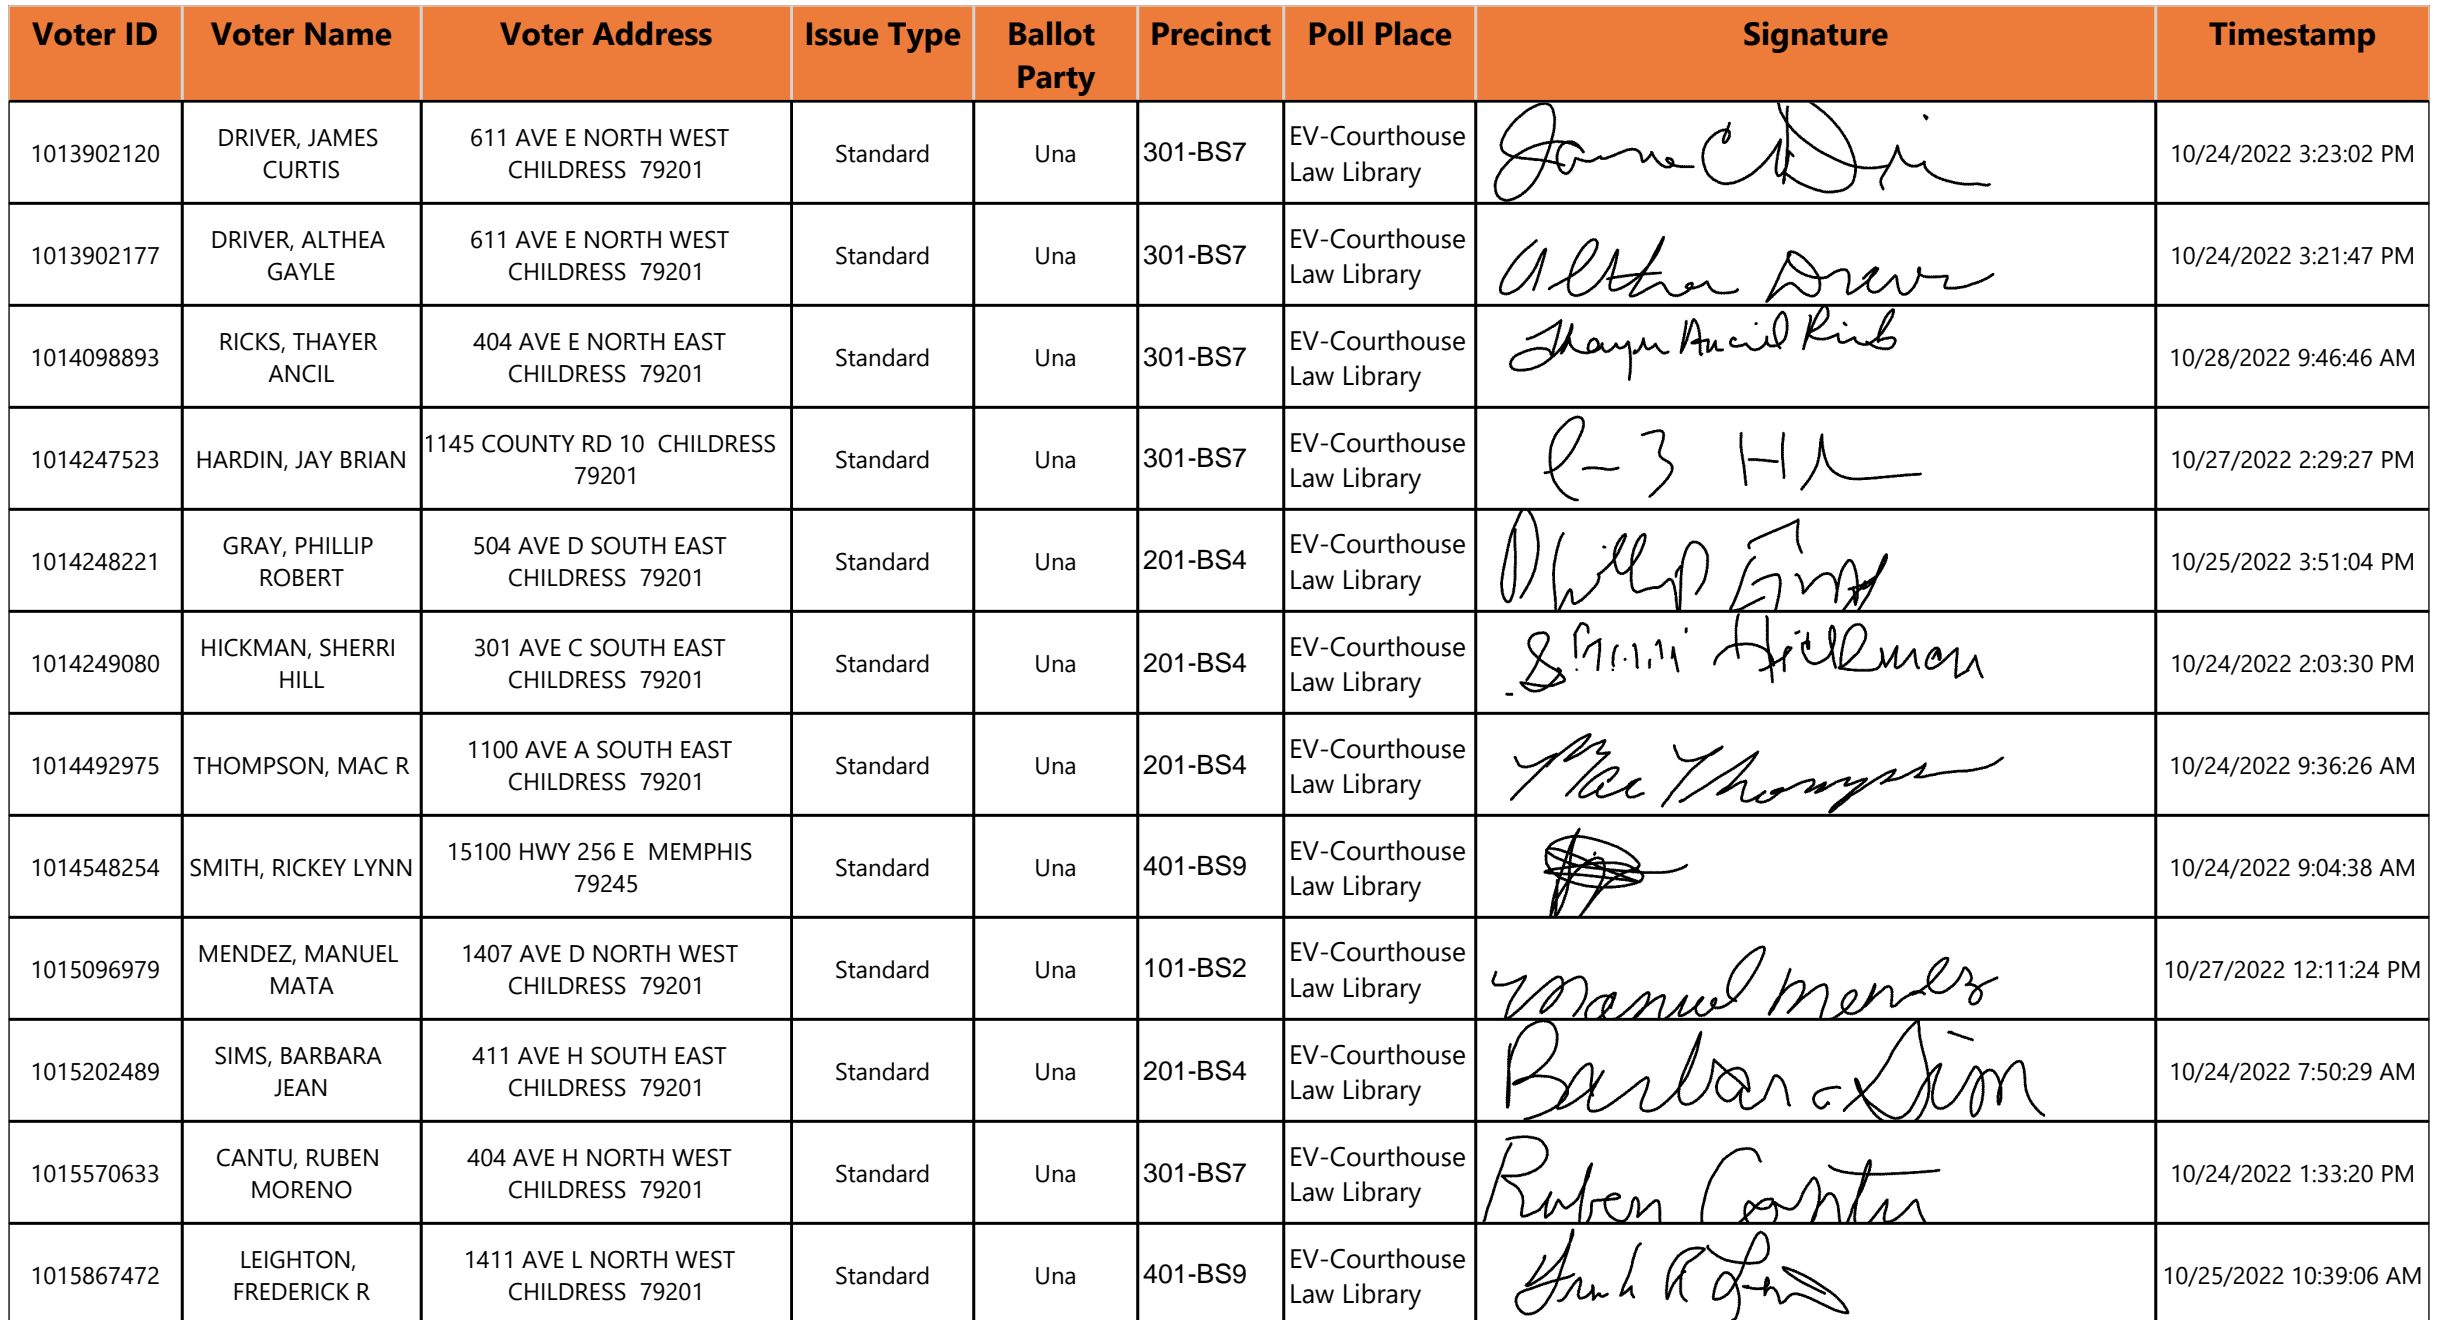 Voter ID Voter Name Voter Address Issue Type Ballot Party Precinct Poll Place Signature Timestamp
1013902120 DRIVER, JAMES CURTIS 611 AVE E NORTH WEST CHILDRESS 79201 Standard Una 301-BS7 EV-Courthouse Law Library 10/24/2022 3:23:02 PM
1013902177 DRIVER, ALTHEA GAYLE 611 AVE E NORTH WEST CHILDRESS 79201 Standard Una 301-BS7 EV-Courthouse Law Library Althea Driver 10/24/2022 3:21:47 PM
1014098893 RICKS, THAYER ANCIL 404 AVE E NORTH EAST CHILDRESS 79201 Standard Una 301-BS7 EV-Courthouse Law Library Thayer Ancil Ricks 10/28/2022 9:46:46 AM
1014247523 HARDIN, JAY BRIAN 1145 COUNTY RD 10 CHILDRESS 79201 Standard Una 301-BS7 EV-Courthouse Law Library 10/27/2022 2:29:27 PM
1014248221 GRAY, PHILLIP ROBERT 504 AVE D SOUTH EAST CHILDRESS 79201 Standard Una 201-BS4 EV-Courthouse Law Library Phillip Gray 10/25/2022 3:51:04 PM
1014249080 HICKMAN, SHERRI HILL 301 AVE C SOUTH EAST CHILDRESS 79201 Standard Una 201-BS4 EV-Courthouse Law Library Sherri Hickman 10/24/2022 2:03:30 PM
1014492975 THOMPSON, MAC R 1100 AVE A SOUTH EAST CHILDRESS 79201 Standard Una 201-BS4 EV-Courthouse Law Library Mac Thompson 10/24/2022 9:36:26 AM
1014548254 SMITH, RICKEY LYNN 15100 HWY 256 E MEMPHIS 79245 Standard Una 401-BS9 EV-Courthouse Law Library 10/24/2022 9:04:38 AM
1015096979 MENDEZ, MANUEL MATA 1407 AVE D NORTH WEST CHILDRESS 79201 Standard Una 101-BS2 EV-Courthouse Law Library Manuel Mendez 10/27/2022 12:11:24 PM
1015202489 SIMS, BARBARA JEAN 411 AVE H SOUTH EAST CHILDRESS 79201 Standard Una 201-BS4 EV-Courthouse Law Library Barbara Sim 10/24/2022 7:50:29 AM
1015570633 CANTU, RUBEN MORENO 404 AVE H NORTH WEST CHILDRESS 79201 Standard Una 301-BS7 EV-Courthouse Law Library Ruben Cantu 10/24/2022 1:33:20 PM
1015867472 LEIGHTON, FREDERICK R 1411 AVE L NORTH WEST CHILDRESS 79201 Standard Una 401-BS9 EV-Courthouse Law Library 10/25/2022 10:39:06 AM